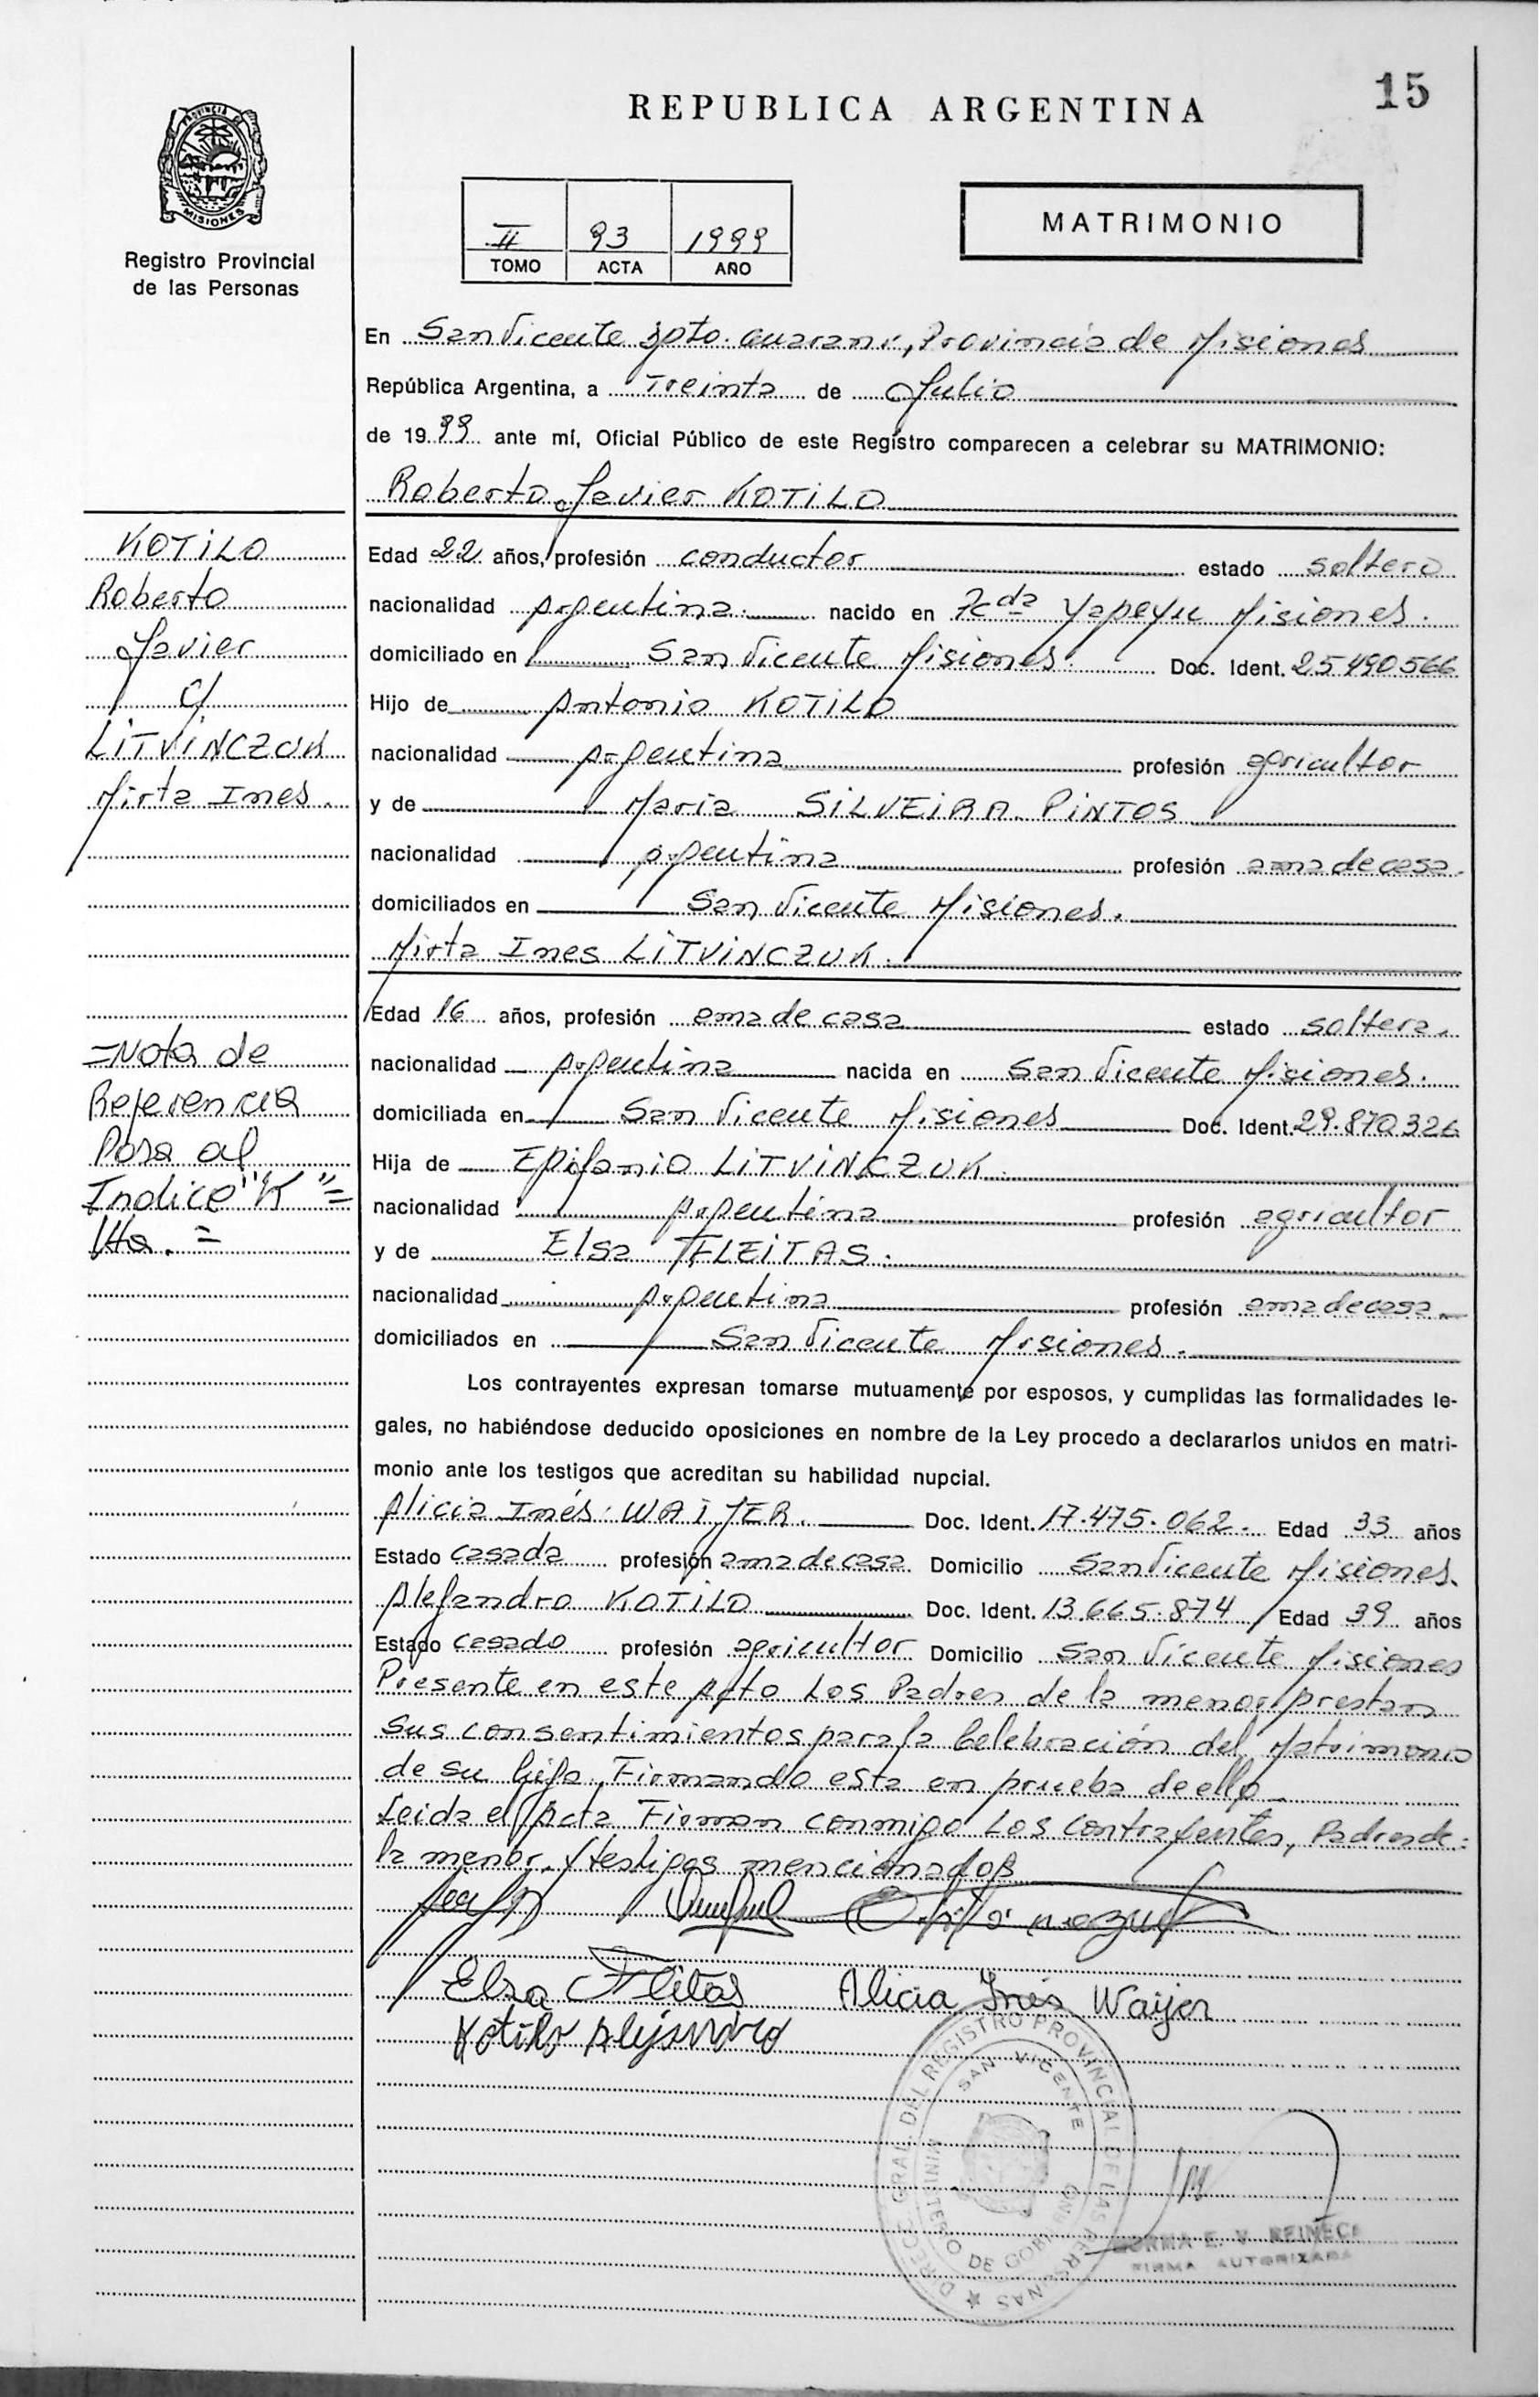 15
REPUBLICA ARGENTINA
PROVINCIA DE
MISIONES
Registro Provincial
de las Personas
II 93 1999
TOMO ACTA AÑO
MATRIMONIO
En San Vicente Dpto. Guarani, Provincia de Misiones
República Argentina, a Treinta de Julio
de 1999 ante mí, Oficial Público de este Registro comparecen a celebrar su MATRIMONIO:
Roberto Javier KOTILO
Edad 22 años, profesión conductor estado soltero
nacionalidad Argentina. nacido en Yapeyu Misiones.
domiciliado en San Vicente Misiones. Doc. Ident. 25490566
Hijo de Antonio KOTILO
nacionalidad Argentina profesión agricultor
y de Maria SILVEIRA PINTOS
nacionalidad Argentina profesión ama de casa.
domiciliados en San Vicente Misiones.
Mirta Ines LITVINCZUK.
Edad 16 años, profesión ama de casa estado soltera.
nacionalidad Argentina nacida en San Vicente Misiones.
domiciliada en San Vicente Misiones Doc. Ident. 29.870326
Hija de Epifanio LITVINCZUK.
nacionalidad Argentina profesión agricultor
y de Elsa FLEITAS.
nacionalidad Argentina profesión ama de casa.
domiciliados en San Vicente Misiones.
Los contrayentes expresan tomarse mutuamente por esposos, y cumplidas las formalidades le-
gales, no habiéndose deducido oposiciones en nombre de la Ley procedo a declararlos unidos en matri-
monio ante los testigos que acreditan su habilidad nupcial.
Alicia Inés WAIJER. Doc. Ident. 17.475.062. Edad 33 años
Estado casada profesión ama de casa. Domicilio San Vicente Misiones.
Alejandro KOTILO Doc. Ident. 13.665.874 Edad 39 años
Estado casado profesión agricultor Domicilio San Vicente Misiones
Presente en este Acto Los Padres de la menor prestan
sus consentimientos para la Celebración del Matrimonio
de su hija, Firmando esta en prueba de ello.
Leida el Acta Firman conmigo Los Contrayentes, Padres de=
la menor y testigos mencionados
Elsa Fleitas Alicia Inés Waijer
Kotilo Alejandro
KOTILO
Roberto
Javier
c/
LITVINCZUK
Mirta Ines.
=Nota de
Referencia
Pasa al
Indice "K"=
=
DIRECC. GRAL. DEL REGISTRO PROVINCIAL DE LAS PERSONAS
SAN VICENTE
MINISTERIO DE GOBIERNO
NORMA E. V. REINECK
FIRMA AUTORIZADA